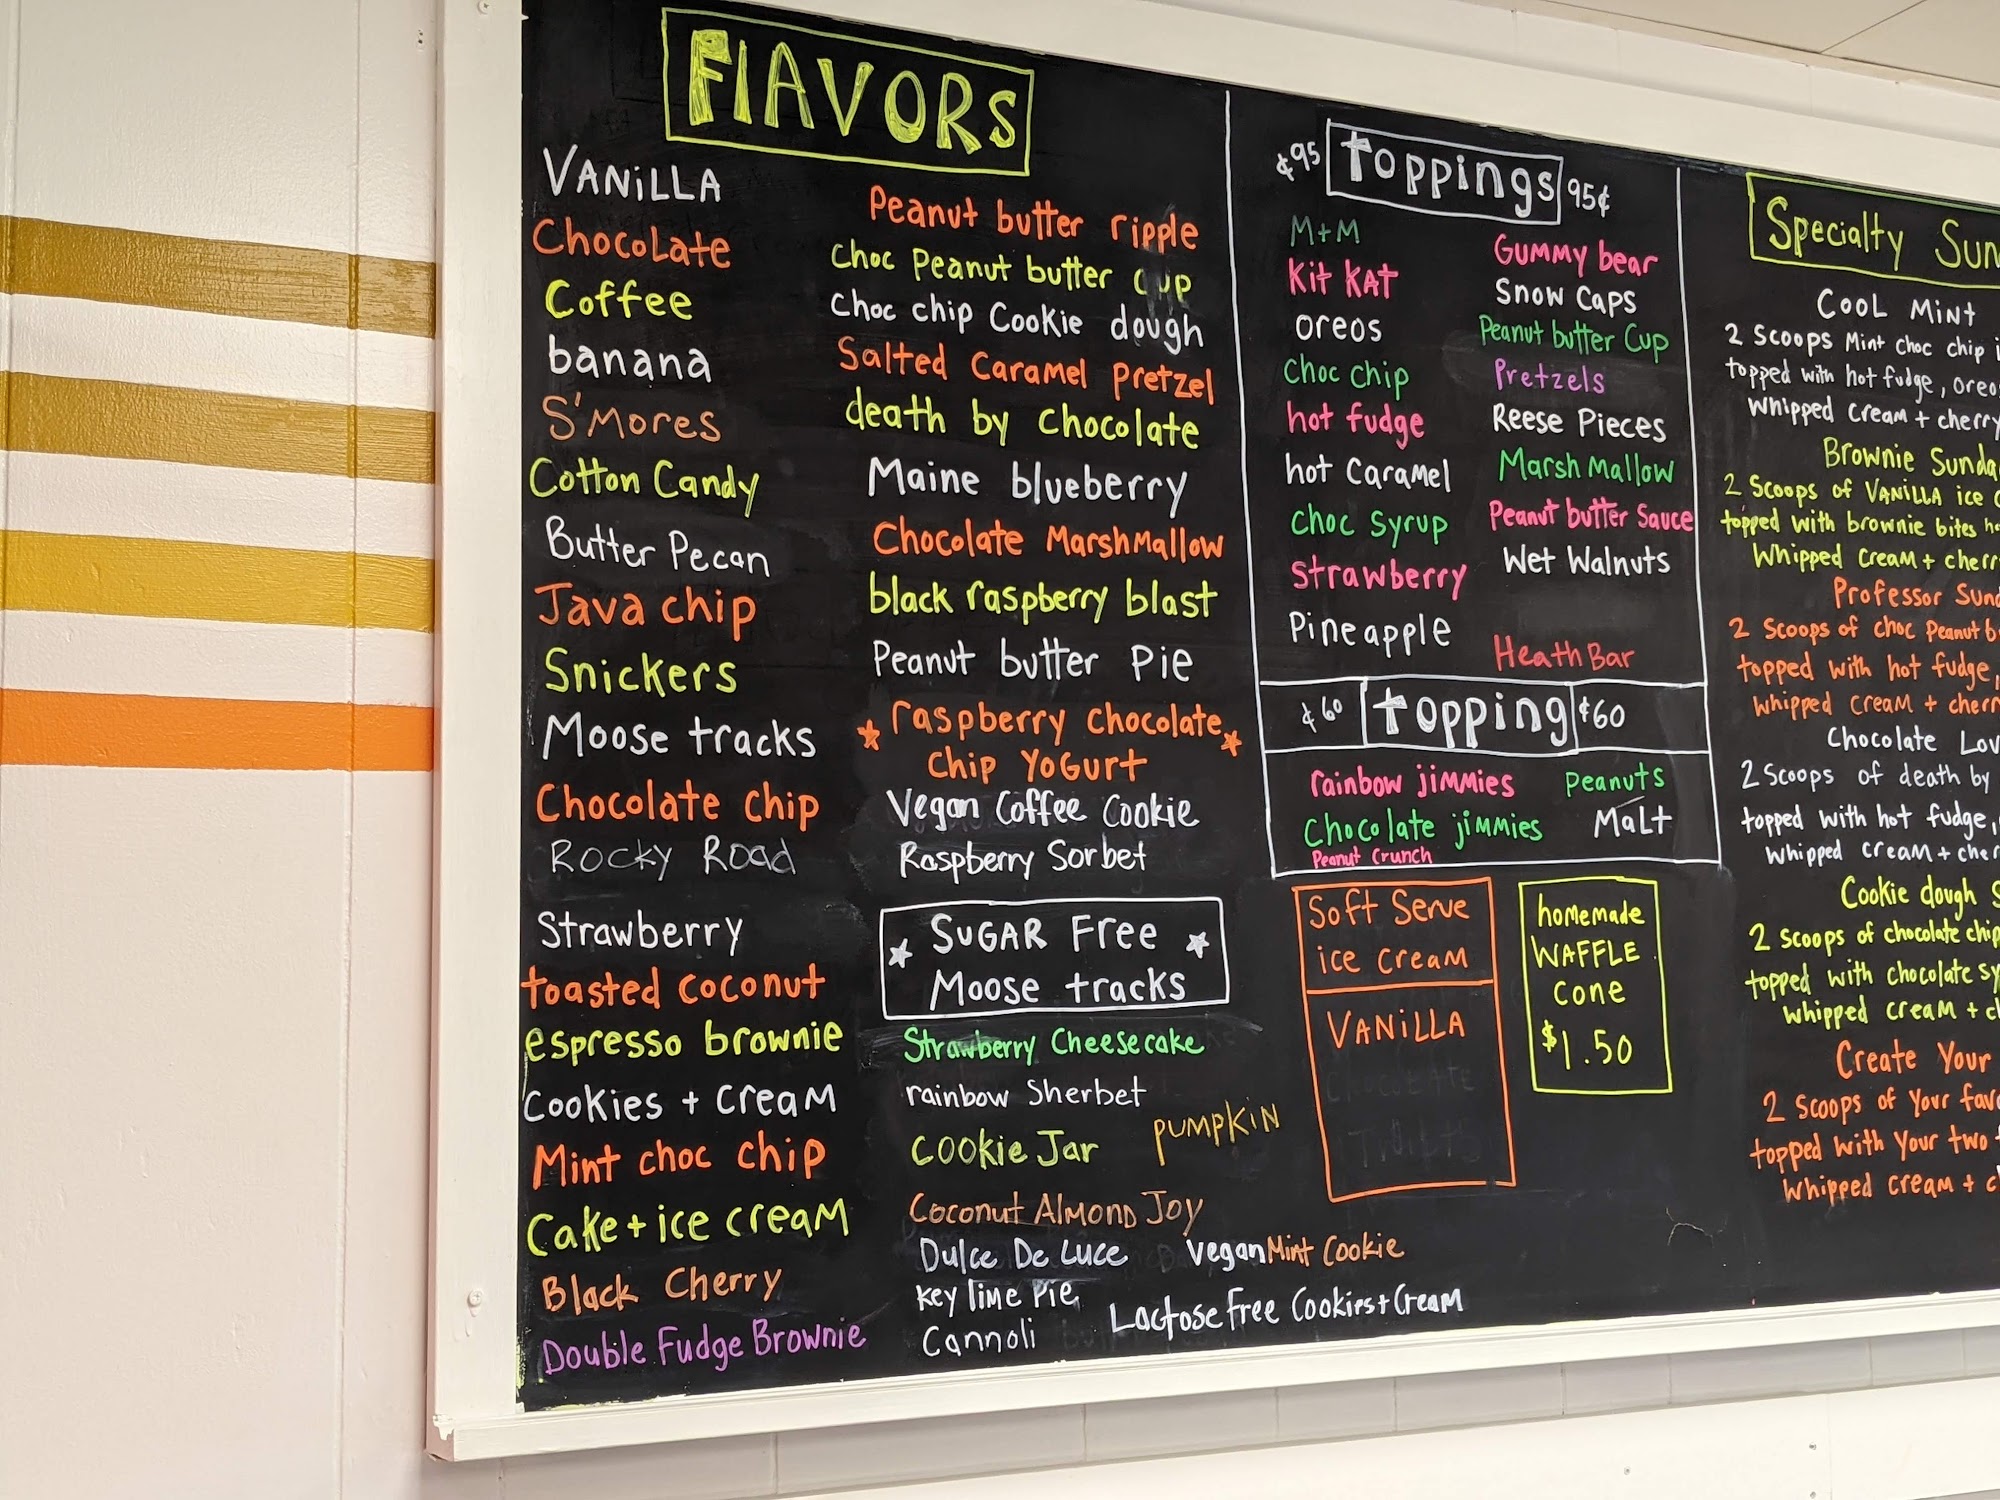 FlAVORS
VANiLLA
Chocolate
Coffee
banana
S'Mores
Cotton Candy
Butter Pecan
Java chip
Snickers
Moose tracks
Chocolate chip
Rocky Road
Strawberry
toasted coconut
espresso brownie
Cookies + cream
Mint choc chip
Cake + ice cream
Black Cherry
Double Fudge Brownie
Peanut butter ripple
Choc peanut butter cup
Choc chip Cookie dough
Salted Caramel pretzel
death by Chocolate
Maine blueberry
Chocolate Marshmallow
black raspberry blast
Peanut butter Pie
raspberry chocolate
chip Yogurt
Vegan Coffee Cookie
Raspberry Sorbet
SUGAR Free
Moose tracks
Strawberry Cheesecake
rainbow Sherbet
Cookie Jar
PUMPKIN
Coconut Almond Joy
Dulce De Luce
Vegan Mint Cookie
Key lime Pie
Lactose free Cookies + Cream
Cannoli
¢95 toppings 95¢
M+M
Kit KAT
oreos
Choc chip
hot fudge
hot Caramel
Choc syrup
Strawberry
Pineapple
Gummy bear
Snow Caps
Peanut butter Cup
Pretzels
Reese Pieces
Marshmallow
Peanut butter Sauce
Wet Walnuts
Heath Bar
¢60 topping ¢60
rainbow jimmies
Peanuts
Chocolate jimmies
Malt
Peanut Crunch
Soft Serve
ice cream
VANiLLA
CHOCOLATE
TWISTS
homemade
WAFFLE
Cone
$1.50
Specialty
Cool Mint
2 Scoops Mint choc chip
topped with hot fudge,
whipped cream + cherry
Brownie
2 Scoops of VANiLLA ice
topped with brownie bites
Whipped cream +
Professor
2 Scoops of choc Peanut
topped with hot fudge,
Whipped cream +
Chocolate
2 Scoops of death by
topped with hot fudge,
whipped cream +
Cookie dough
2 Scoops of chocolate
topped with chocolate
whipped cream +
Create Your
2 Scoops of Your
topped with Your two
whipped cream +